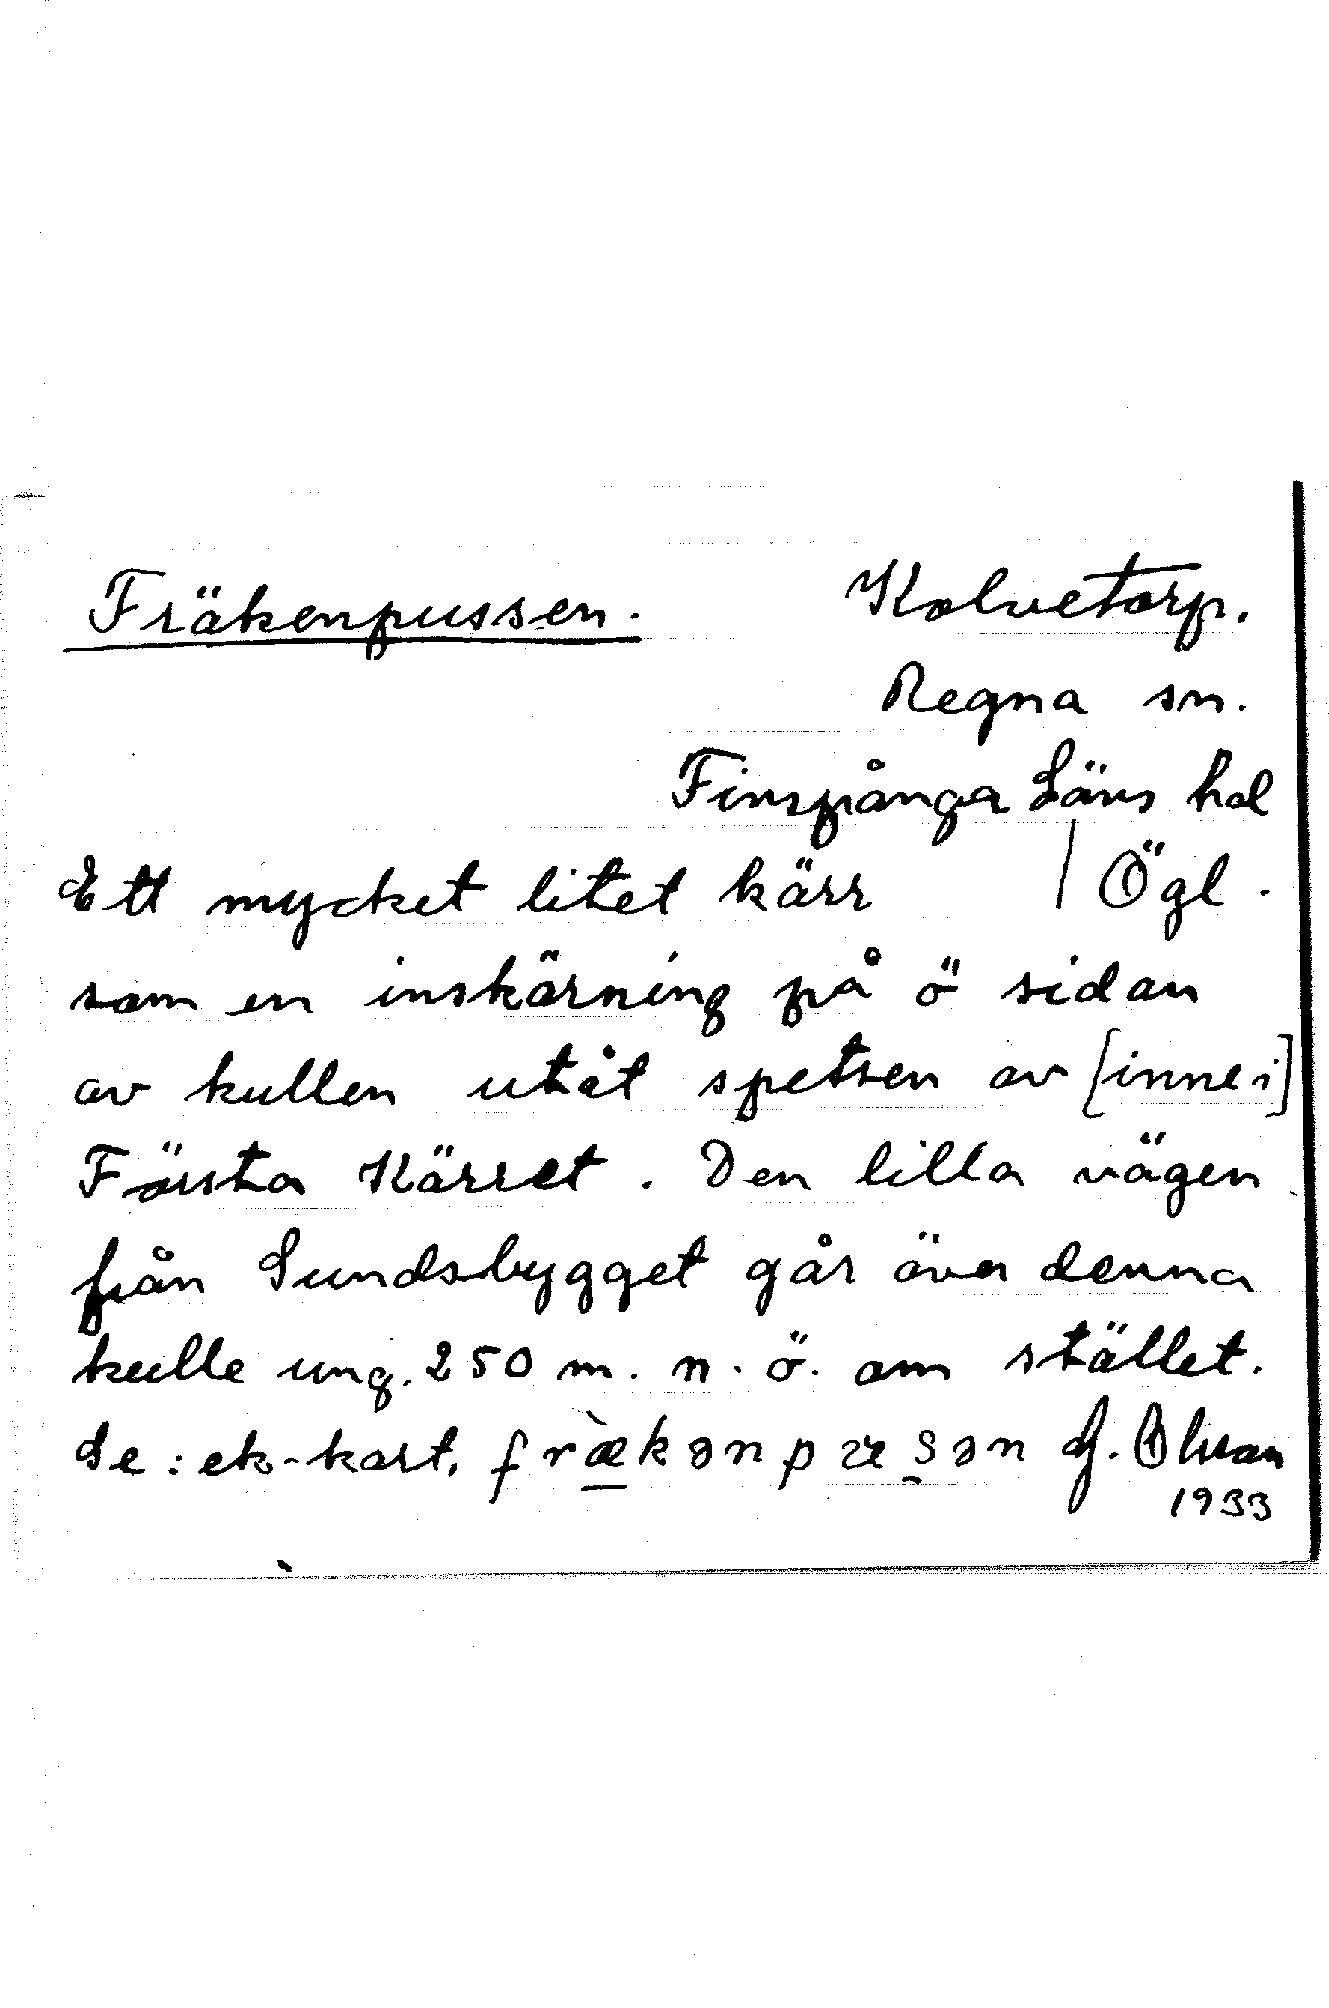 Fräkenpussen.
Kolvetorp.
Regna sn.
Finspånga Läns hd
Ett mycket litet kärr / Ögl.
som en inskärning på ö sidan
av kullen utåt spetsen av [inne i]
Första Kärret. Den lilla vägen
från Sundsbygget går över denna
kulle ung. 250 m. n. ö. om stället.
Se: ek-kart.
Olsson
1933